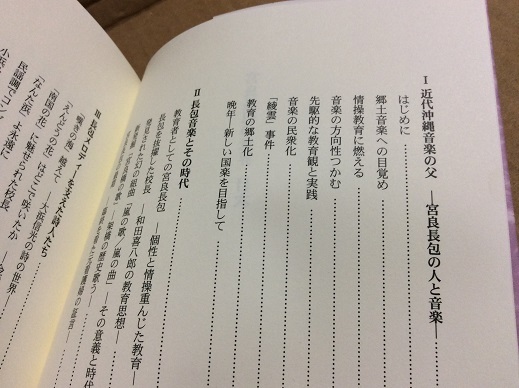 I 近代沖縄音楽の父 ―宮良長包の人と音楽―
はじめに
郷土音楽への目覚め
情操教育に燃える
音楽の方向性つかむ
先駆的な教育観と実践
音楽の民衆化
「綾雲」事件
教育の郷土化
晩年―新しい国楽を目指して
II 長包音楽とその時代
教育者としての宮良長包 ―個性と情操重んじた教育―
長包を抜擢した校長 ―和田喜八郎の教育思想―
発見された幻の組曲「嵐の歌/嵐の曲」 ―その意義と時代
III 長包メロディーを支えた詩人たち
「嘆きの海」越えて
「えんどうの花」
「南国の花」はどこで咲いたか
「なんた浜」に魅せられた校長